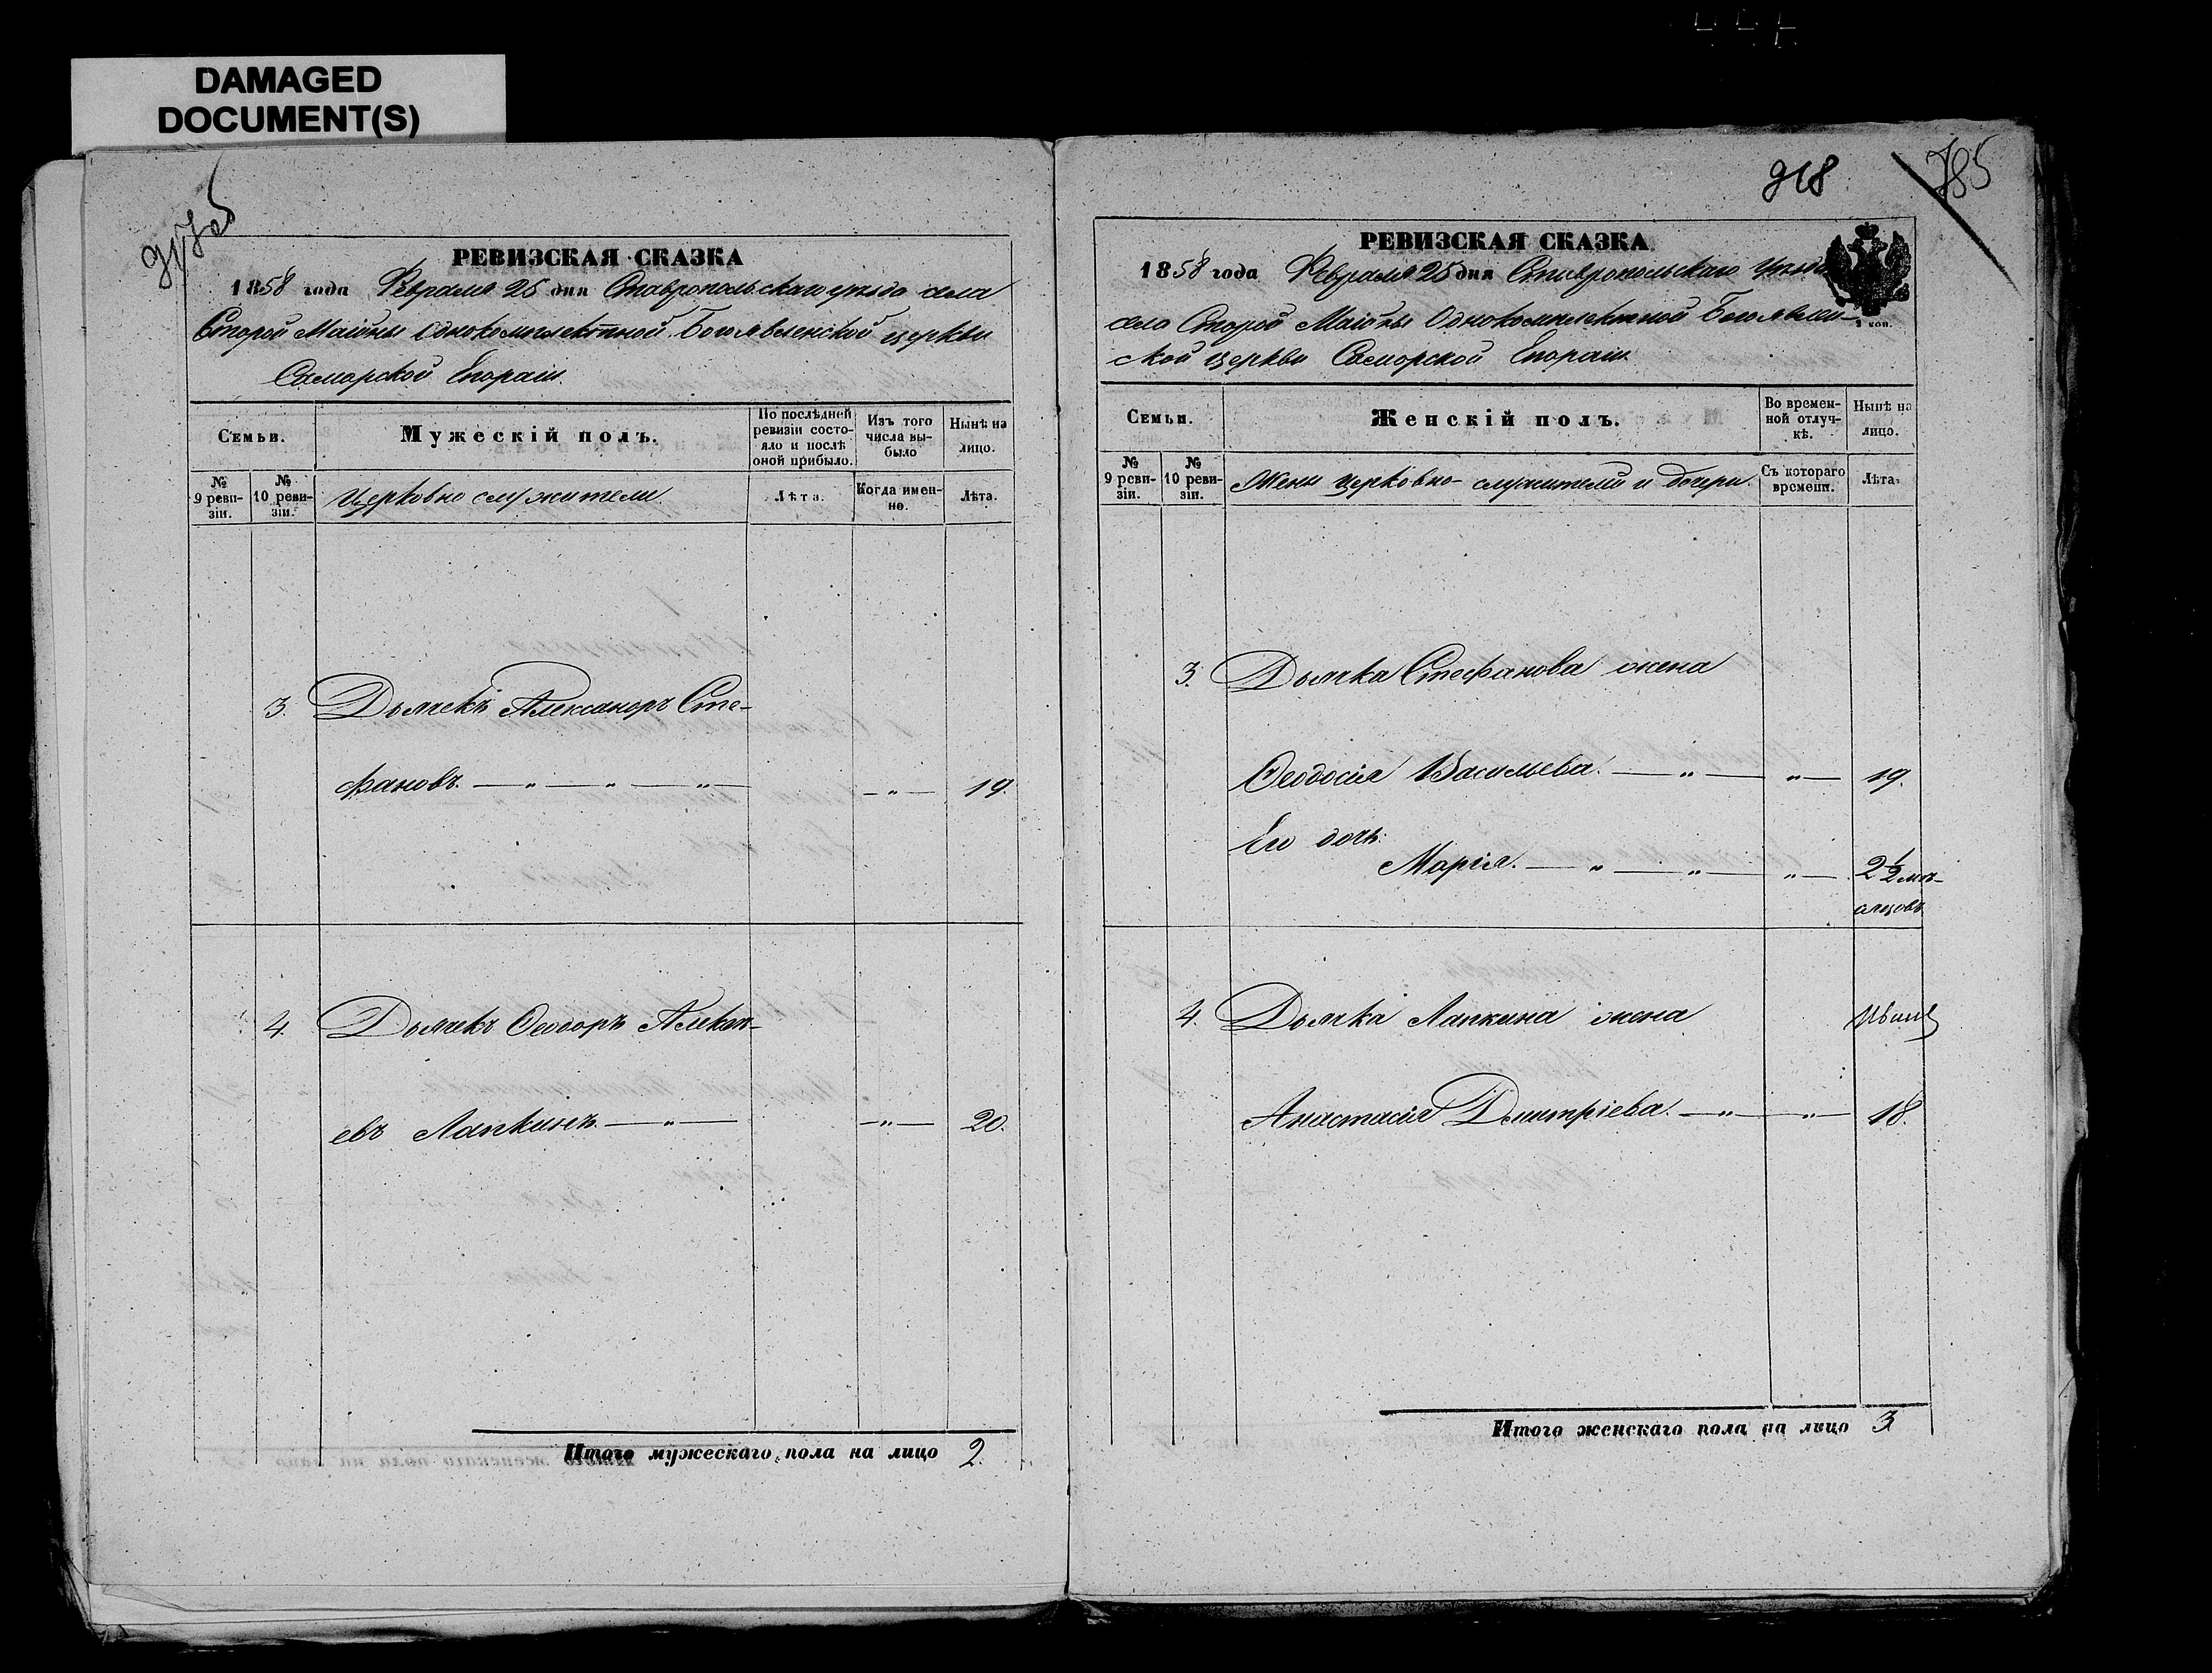 DAMAGED
DOCUMENT(S)
РЕВИЗСКАЯ СКАЗКА
1858 года Февраля 25 дня Ставропольскаго уѣзда села
Старой Майны Однокомплектной Богоявленской церкви
Самарской Епархіи.
Семьи.
Мужескій полъ.
По послѣдней ревизіи состояло и послѣ оной прибыло.
Изъ того числа выбыло
Нынѣ на лицо.
№ 9 ревизіи.
№ 10 ревизіи.
Церковно служители
Лѣта.
Когда именно.
Лѣта.
3. Дьячекъ Александръ Сте-
фановъ. — „ — „ — „ — — „ — 19.
4. Дьячекъ Ѳеодоръ Алексѣ-
евъ Лапкинъ. — „ — — „ — 20.
Итого мужескаго пола на лицо 2.
918
785
РЕВИЗСКАЯ СКАЗКА
1858 года Февраля 25 дня Ставропольскаго Уѣзда
села Старой Майны Однокомплектной Богоявлен-
ской церкви Самарской Епархіи.
коп.
Семьи.
Женскій полъ.
Во временной отлучкѣ.
Нынѣ на лицо.
№ 9 ревизіи.
№ 10 ревизіи.
Жены церковно-служителей и дочери.
Съ котораго времени.
Лѣта.
3. Дьячка Стефанова жена
Ѳеодосія Васильева. — „ — „ — 19.
Его дочь:
Марія. — „ — „ — „ — 2½ мѣ-
сяцовъ
4. Дьячка Лапкина жена
Анастасія Дмитріева. — „ — „ — 18.
Итого женскаго пола на лицо 3